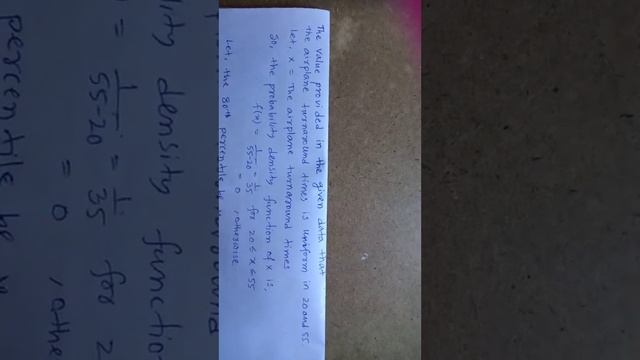 The value provided in the given data that
the airplane turnaround times is uniform in 20 and 55.
Let, x = The airplane turnaround times
So, the probability density function of x is,
f(x) = 1/55-20 = 1/35 for 20 ≤ x ≤ 55
= 0 , otherwise
Let, the 80th percentile be